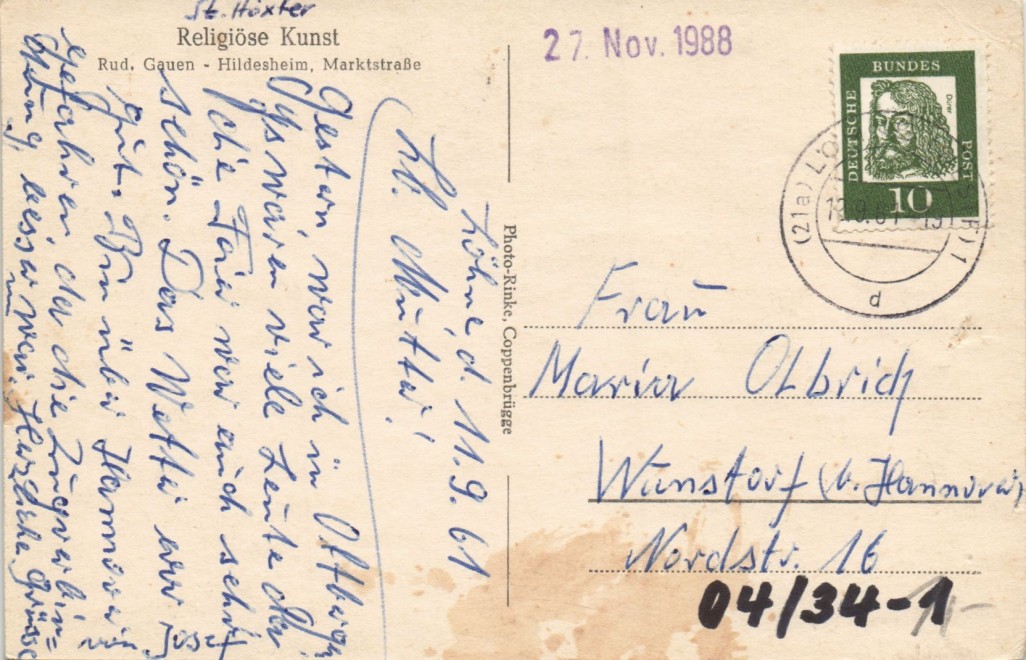 St. Höxter
Religiöse Kunst
Rud. Gauen - Hildesheim, Marktstraße
Löhne, d. 11.9.61
Lb. Mutter!
Gestern war ich in Ottbergen
Es waren viele Leute da.
Die Feier war auch sehr
schön. Das Wetter war
gut. Bin über Hannover
gefahren da die Zugverbin=
dung besser war. Herzliche Grüsse
von Josef
Photo-Rinke, Coppenbrügge
27. Nov. 1988
DEUTSCHE BUNDES POST
Dürer
10
(21a) LÖ
d
Frau
Maria Olbrich
Wunstorf (b. Hannover)
Nordstr. 16
04/34-1